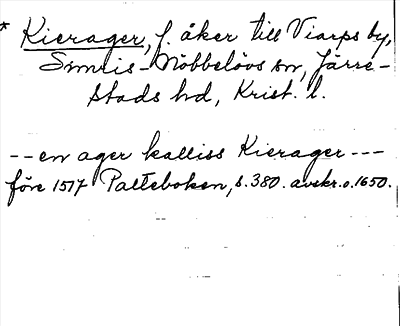 * Kierager, f. åker till Viarps by,
Simris-Nöbbelövs sn, Järre-
stads hd, Krist. l.
-- en ager kalliss Kierager ---
före 1517 Palteboken, s. 380. avskr. o. 1650.